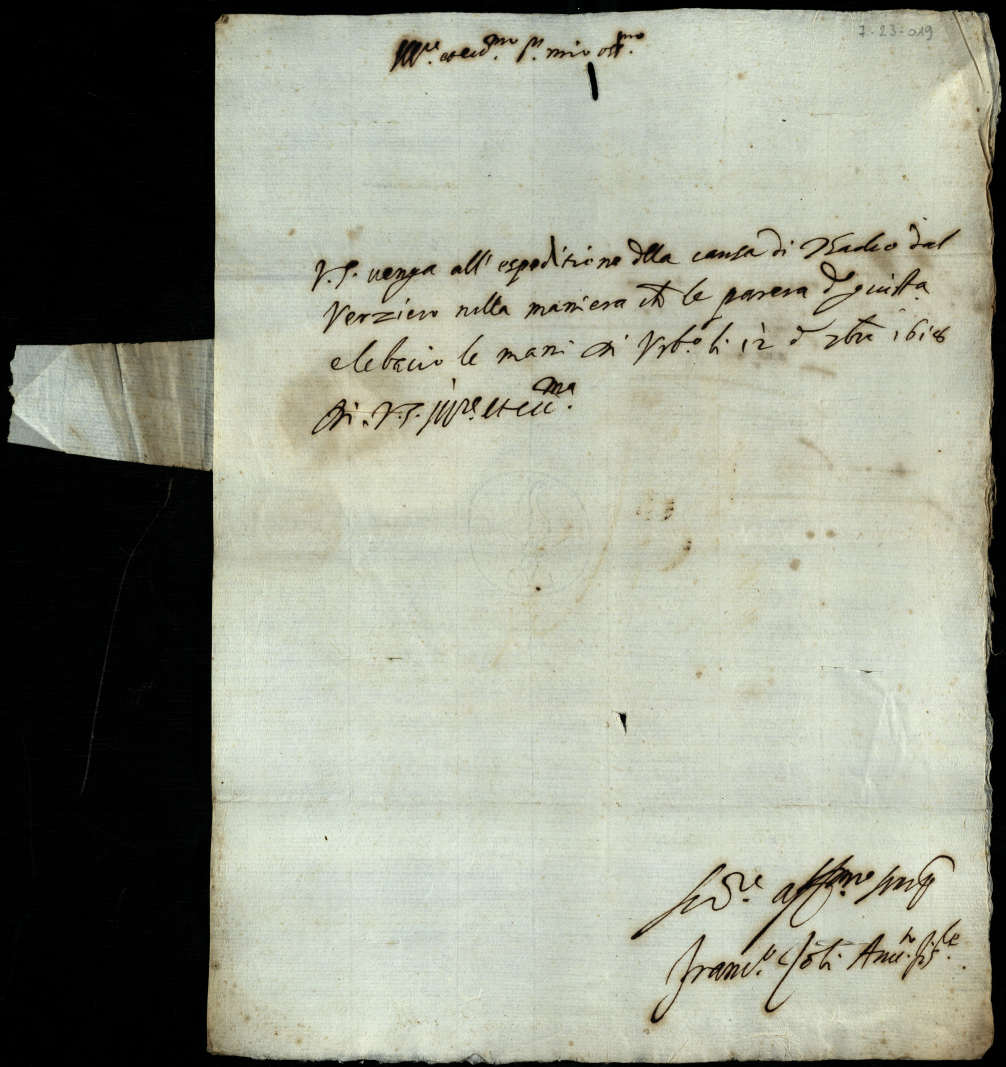 7-23-019
Ill.re et ecc.mo S.r mio oss.mo
V.S. venga all'espeditione della causa di Thadeo dal
Verziero nella maniera ch le parera d giusta
e le bacio le mani Di Urb.o li 12 d xbre 1618
Di V.S. Ill.re et ecc.ma
Se.re aff.mo sempre
Fran.co